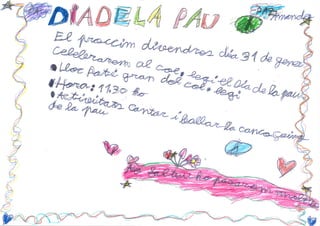 DIA DE LA PAU
Amanda
El proccim divendres dia 31 de gener
celebrarem al col·legi el Dia de la pau
• Lloc Pati gran del col·legi
• Hora: 11'30 h
• Activitats Cantar i ballar la canço
de la pau